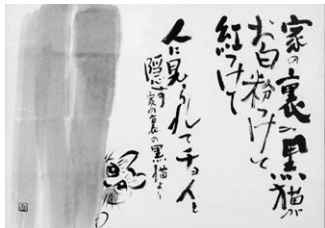 家の裏の黒猫が
お白粉つけて
紅つけて
人に見られてチョイと
隠す
家の裏の黒猫よ